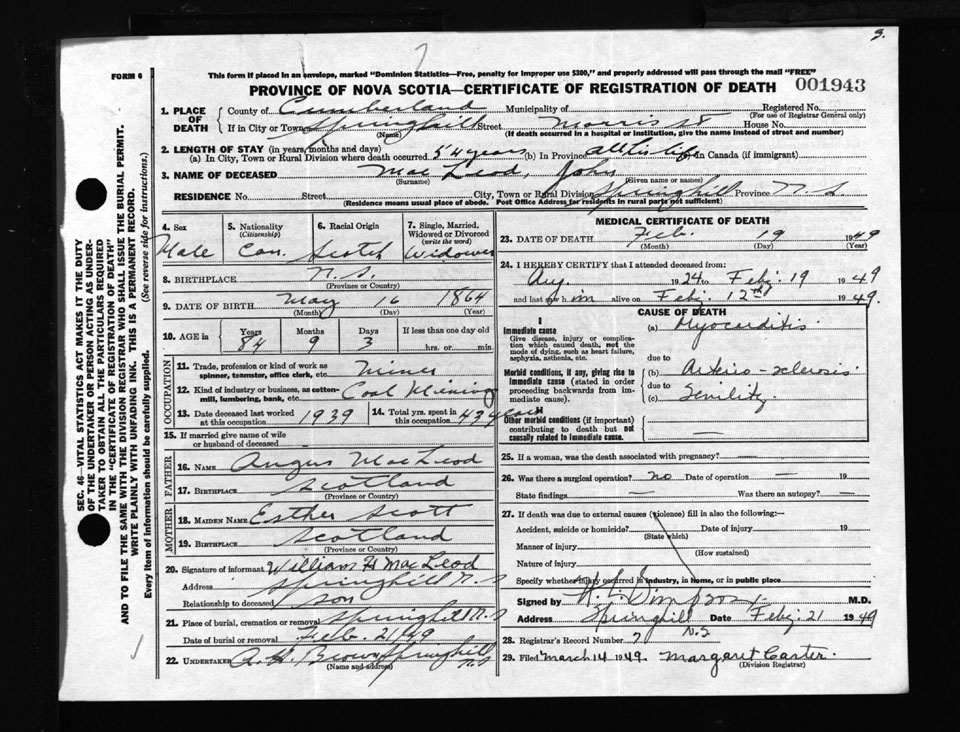 3.
7
FORM 6
This form if placed in an envelope, marked "Dominion Statistics—Free, penalty for improper use $300," and properly addressed will pass through the mail "FREE"
PROVINCE OF NOVA SCOTIA—CERTIFICATE OF REGISTRATION OF DEATH 001943
SEC. 46—VITAL STATISTICS ACT MAKES IT THE DUTY
OF THE UNDERTAKER OR PERSON ACTING AS UNDER-
TAKER TO OBTAIN ALL THE PARTICULARS REQUIRED
IN THE "CERTIFICATE OF REGISTRATION OF DEATH"
AND TO FILE THE SAME WITH THE DIVISION REGISTRAR WHO SHALL ISSUE THE BURIAL PERMIT.
WRITE PLAINLY WITH UNFADING INK. THIS IS A PERMANENT RECORD.
Every item of information should be carefully supplied. (See reverse side for instructions.)
1. PLACE OF DEATH
County of Cumberland Municipality of Registered No.
(For use of Registrar General only)
If in City or Town Springhill Street Morris St House No.
(Name) (If death occurred in a hospital or institution, give the name instead of street and number)
2. LENGTH OF STAY (in years, months and days)
(a) In City, Town or Rural Division where death occurred 54 years (b) In Province all his life In Canada (if immigrant)
3. NAME OF DECEASED Mac Leod, John
(Surname) (Given name or names)
RESIDENCE No. Street City, Town or Rural Division Springhill Province N.S
(Residence means usual place of abode. Post Office Address for residents in rural parts not sufficient)
4. Sex
Male
5. Nationality
(Citizenship)
Can.
6. Racial Origin
Scotch
7. Single, Married,
Widowed or Divorced
(write the word)
Widower
8. BIRTHPLACE N.S.
(Province or Country)
9. DATE OF BIRTH May 16 1864
(Month) (Day) (Year)
10. AGE in Years Months Days If less than one day old
84 9 3 hrs. or min.
OCCUPATION
11. Trade, profession or kind of work as
spinner, teamster, office clerk, etc. Miner
12. Kind of industry or business, as cotton-
mill, lumbering, bank, etc. Coal Mining
13. Date deceased last worked
at this occupation 1939
14. Total yrs. spent in
this occupation 43 years
15. If married give name of wife
or husband of deceased
FATHER
16. NAME Angus MacLeod
17. BIRTHPLACE Scotland
(Province or Country)
MOTHER
18. MAIDEN NAME Esther Scott
19. BIRTHPLACE Scotland
(Province or Country)
20. Signature of informant William H MacLeod
Address Springhill N.S
Relationship to deceased son
21. Place of burial, cremation or removal Springhill N.S
Date of burial or removal Feb. 21/49
22. UNDERTAKER A.H. Brown Springhill
N.S
(Name and address)
MEDICAL CERTIFICATE OF DEATH
23. DATE OF DEATH Feb. 19 1949
(Month) (Day) (Year)
24. I HEREBY CERTIFY that I attended deceased from:
Aug. 1924 to Feby. 19 1949
and last saw him alive on Feby. 12th 1949.
CAUSE OF DEATH
I
Immediate cause
Give disease, injury or complica-
tion which caused death, not the
mode of dying, such as heart failure,
asphyxia, asthenia, etc.
(a) Myocarditis
due to
Morbid conditions, if any, giving rise to
immediate cause (stated in order
proceeding backwards from im-
mediate cause).
(b) Arterio-sclerosis
due to
(c) Senility
II
Other morbid conditions (if important)
contributing to death but not
causally related to immediate cause.
25. If a woman, was the death associated with pregnancy? —
26. Was there a surgical operation? no Date of operation — 19
State findings — Was there an autopsy? —
27. If death was due to external causes (violence) fill in also the following:—
Accident, suicide or homicide? Date of injury 19
(State which)
Manner of injury
(How sustained)
Nature of injury
Specify whether injury occurred in industry, in home, or in public place
Signed by Simpson M.D.
Address Springhill N.S Date Feby. 21 1949
28. Registrar's Record Number 7
29. Filed March 14 1949. Margaret Carter.
(Division Registrar)